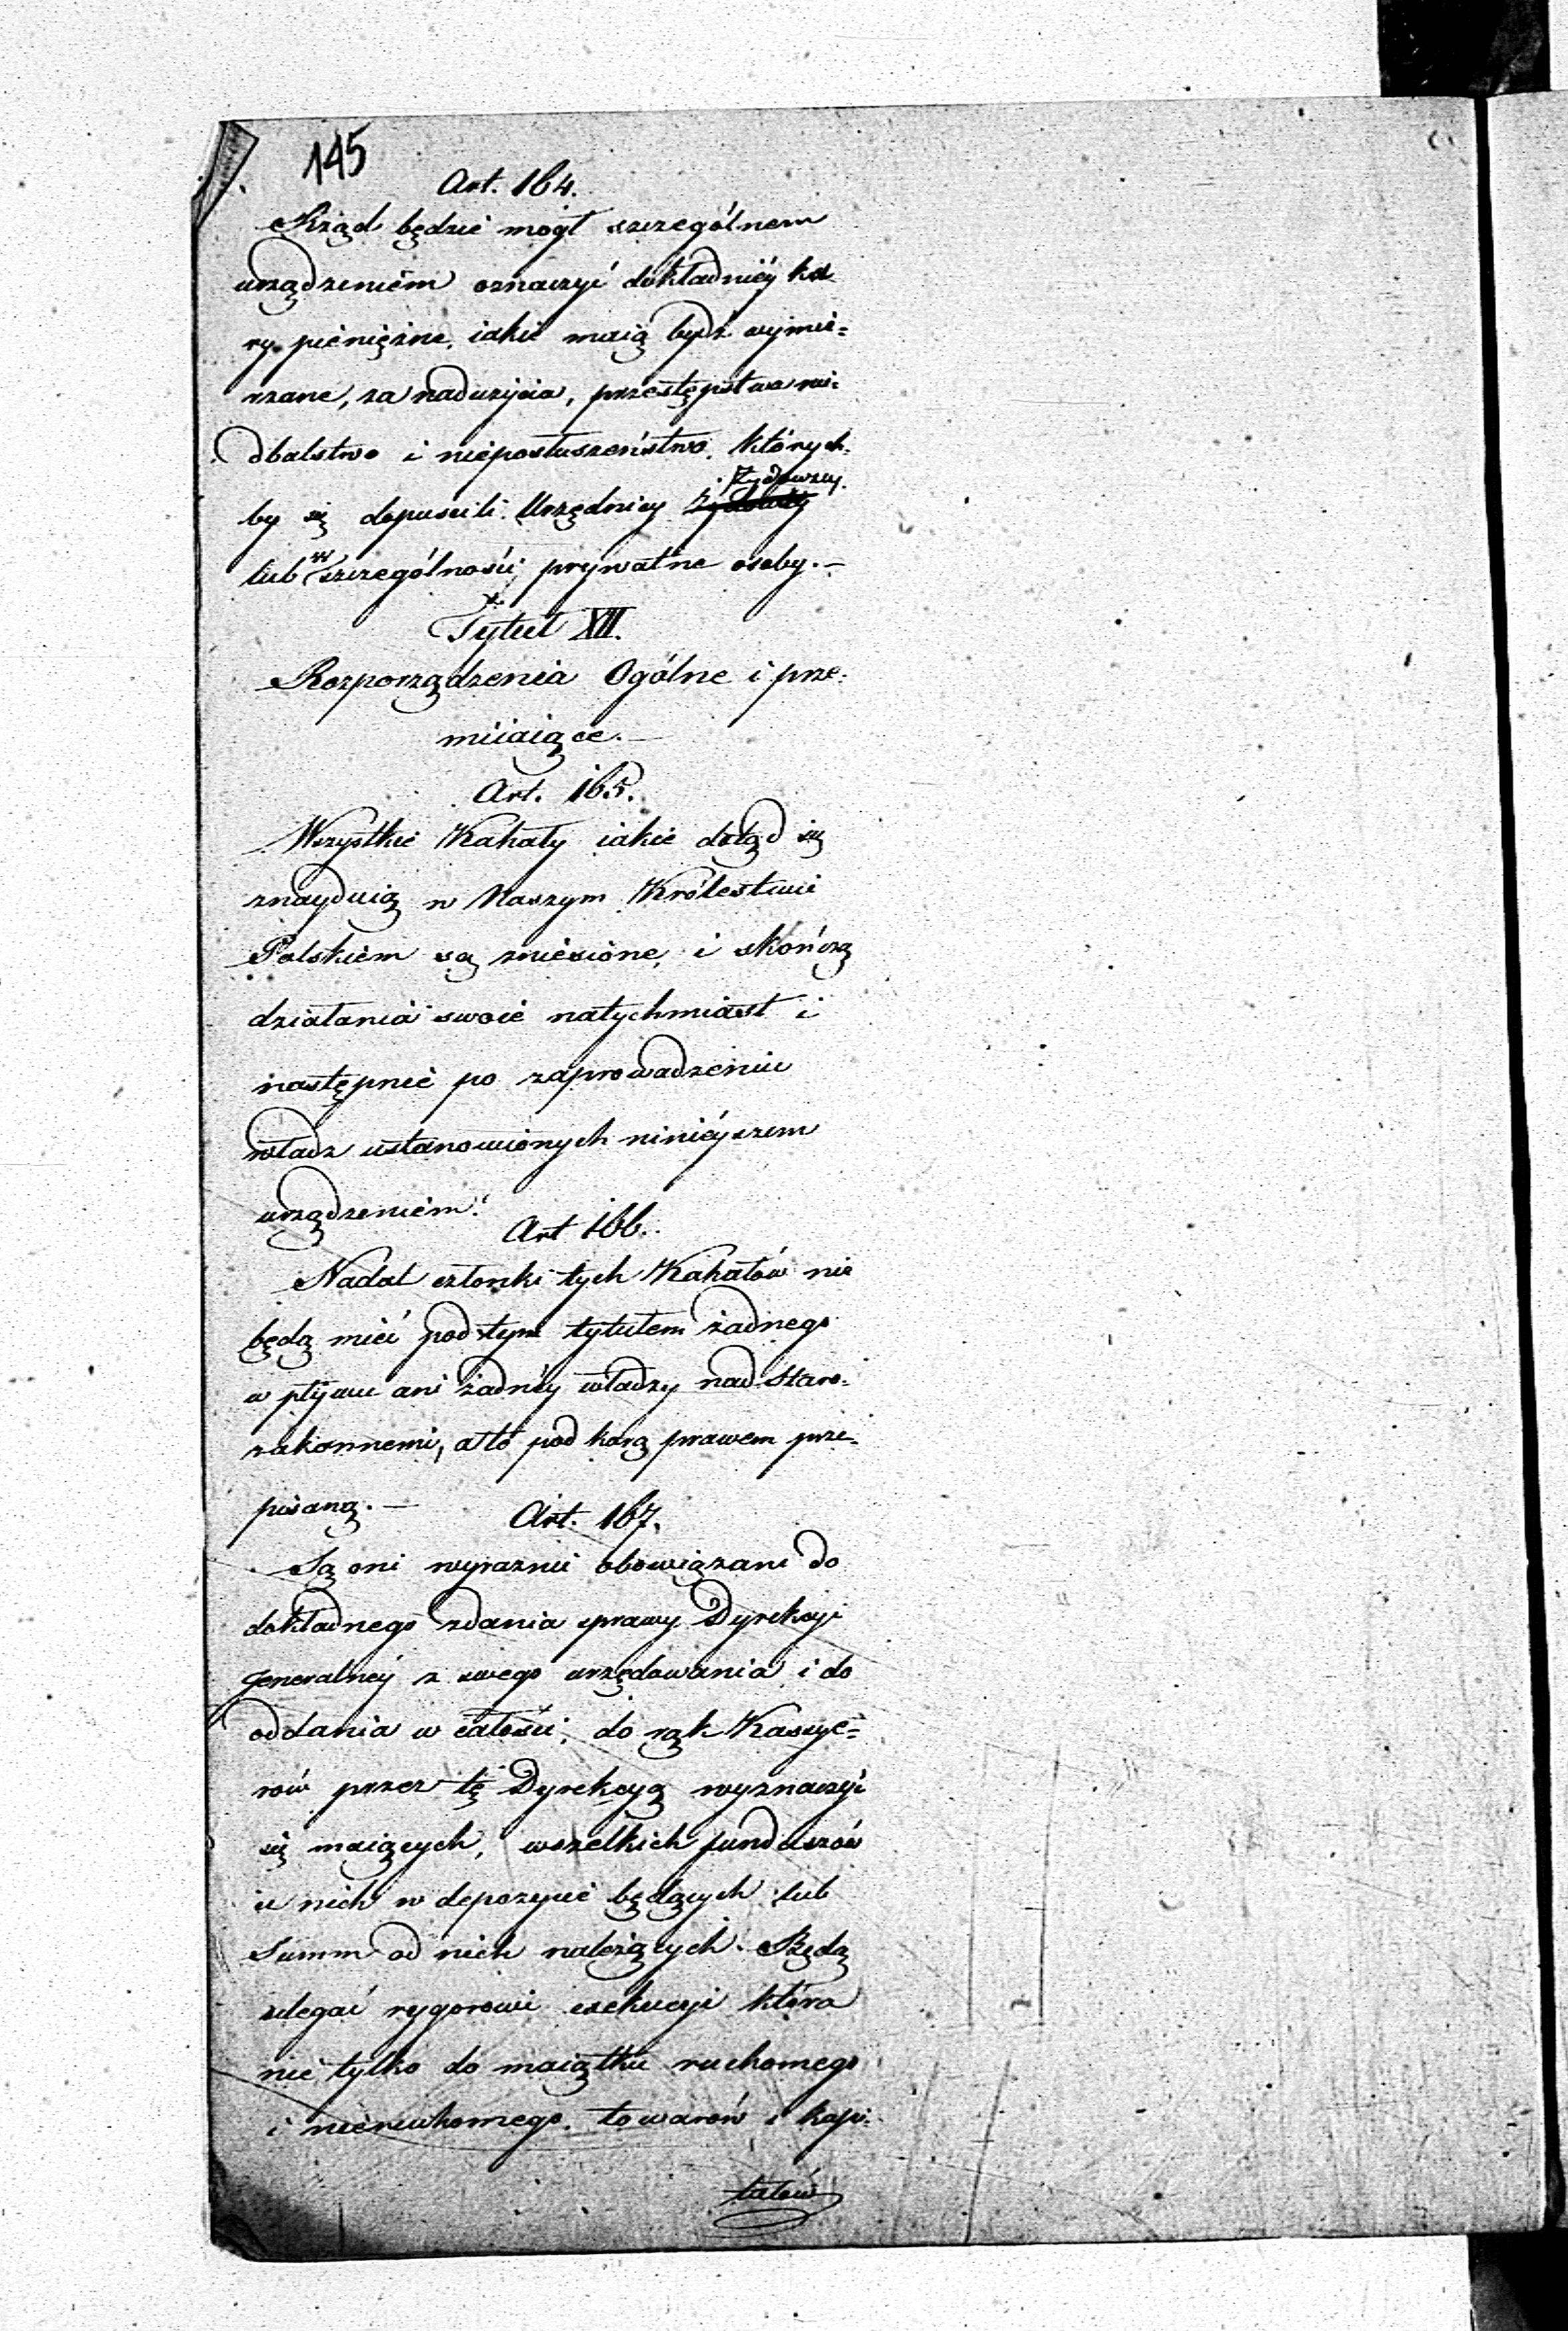 145
Art. 164.
Rząd będzie mógł szczególnem
urządzeniem oznaczyć dokładniéy ka
ry pieniężne, iakie maią bydź wymie=
rzane, za nadużycia, przestępstwa nie=
dbalstwo i nieposłuszeństwo, których-
Żydowscy.
by się dopuścili Urzędnicy
lub w szczególności prywatne osoby.—
Tytuł XII.
Rozporządzenia Ogólne i prze-
miiaiące.—
Art. 165.
Wszystkie Kahały iakie dotąd się
znayduią w Naszym Królestwie
Polskiem są zniesione, i skończą
działania swoie natychmiast i
następnie po zaprowadzeniu
władz ustanowionych ninieyszem
urządzeniem.
Art 166.
Nadal członki tych Kahałów nie
będą mieć pod tym tytułem żadnego
w pływu ani żadnéy władzy nad Staro-
zakonnemi, a to pod karą prawem prze-
pisaną.—
Art. 167.
Są oni wyraznie obowiązani do
dokładnego zdania sprawy Dyrekcyi
generalnéy z swego urzędowania i do
oddania w całości, do rąk Kassye=
rów przez tę Dyrekcyą wyznaczyć
się maiących, wszelkich funduszów
u nich w depozycie będących lub
Summ od nich należących. Będą
ulegać rygorowi exekucyi która
nie tylko do maiątku ruchomego
i nieruchomego, towarów i kapi-
tałów